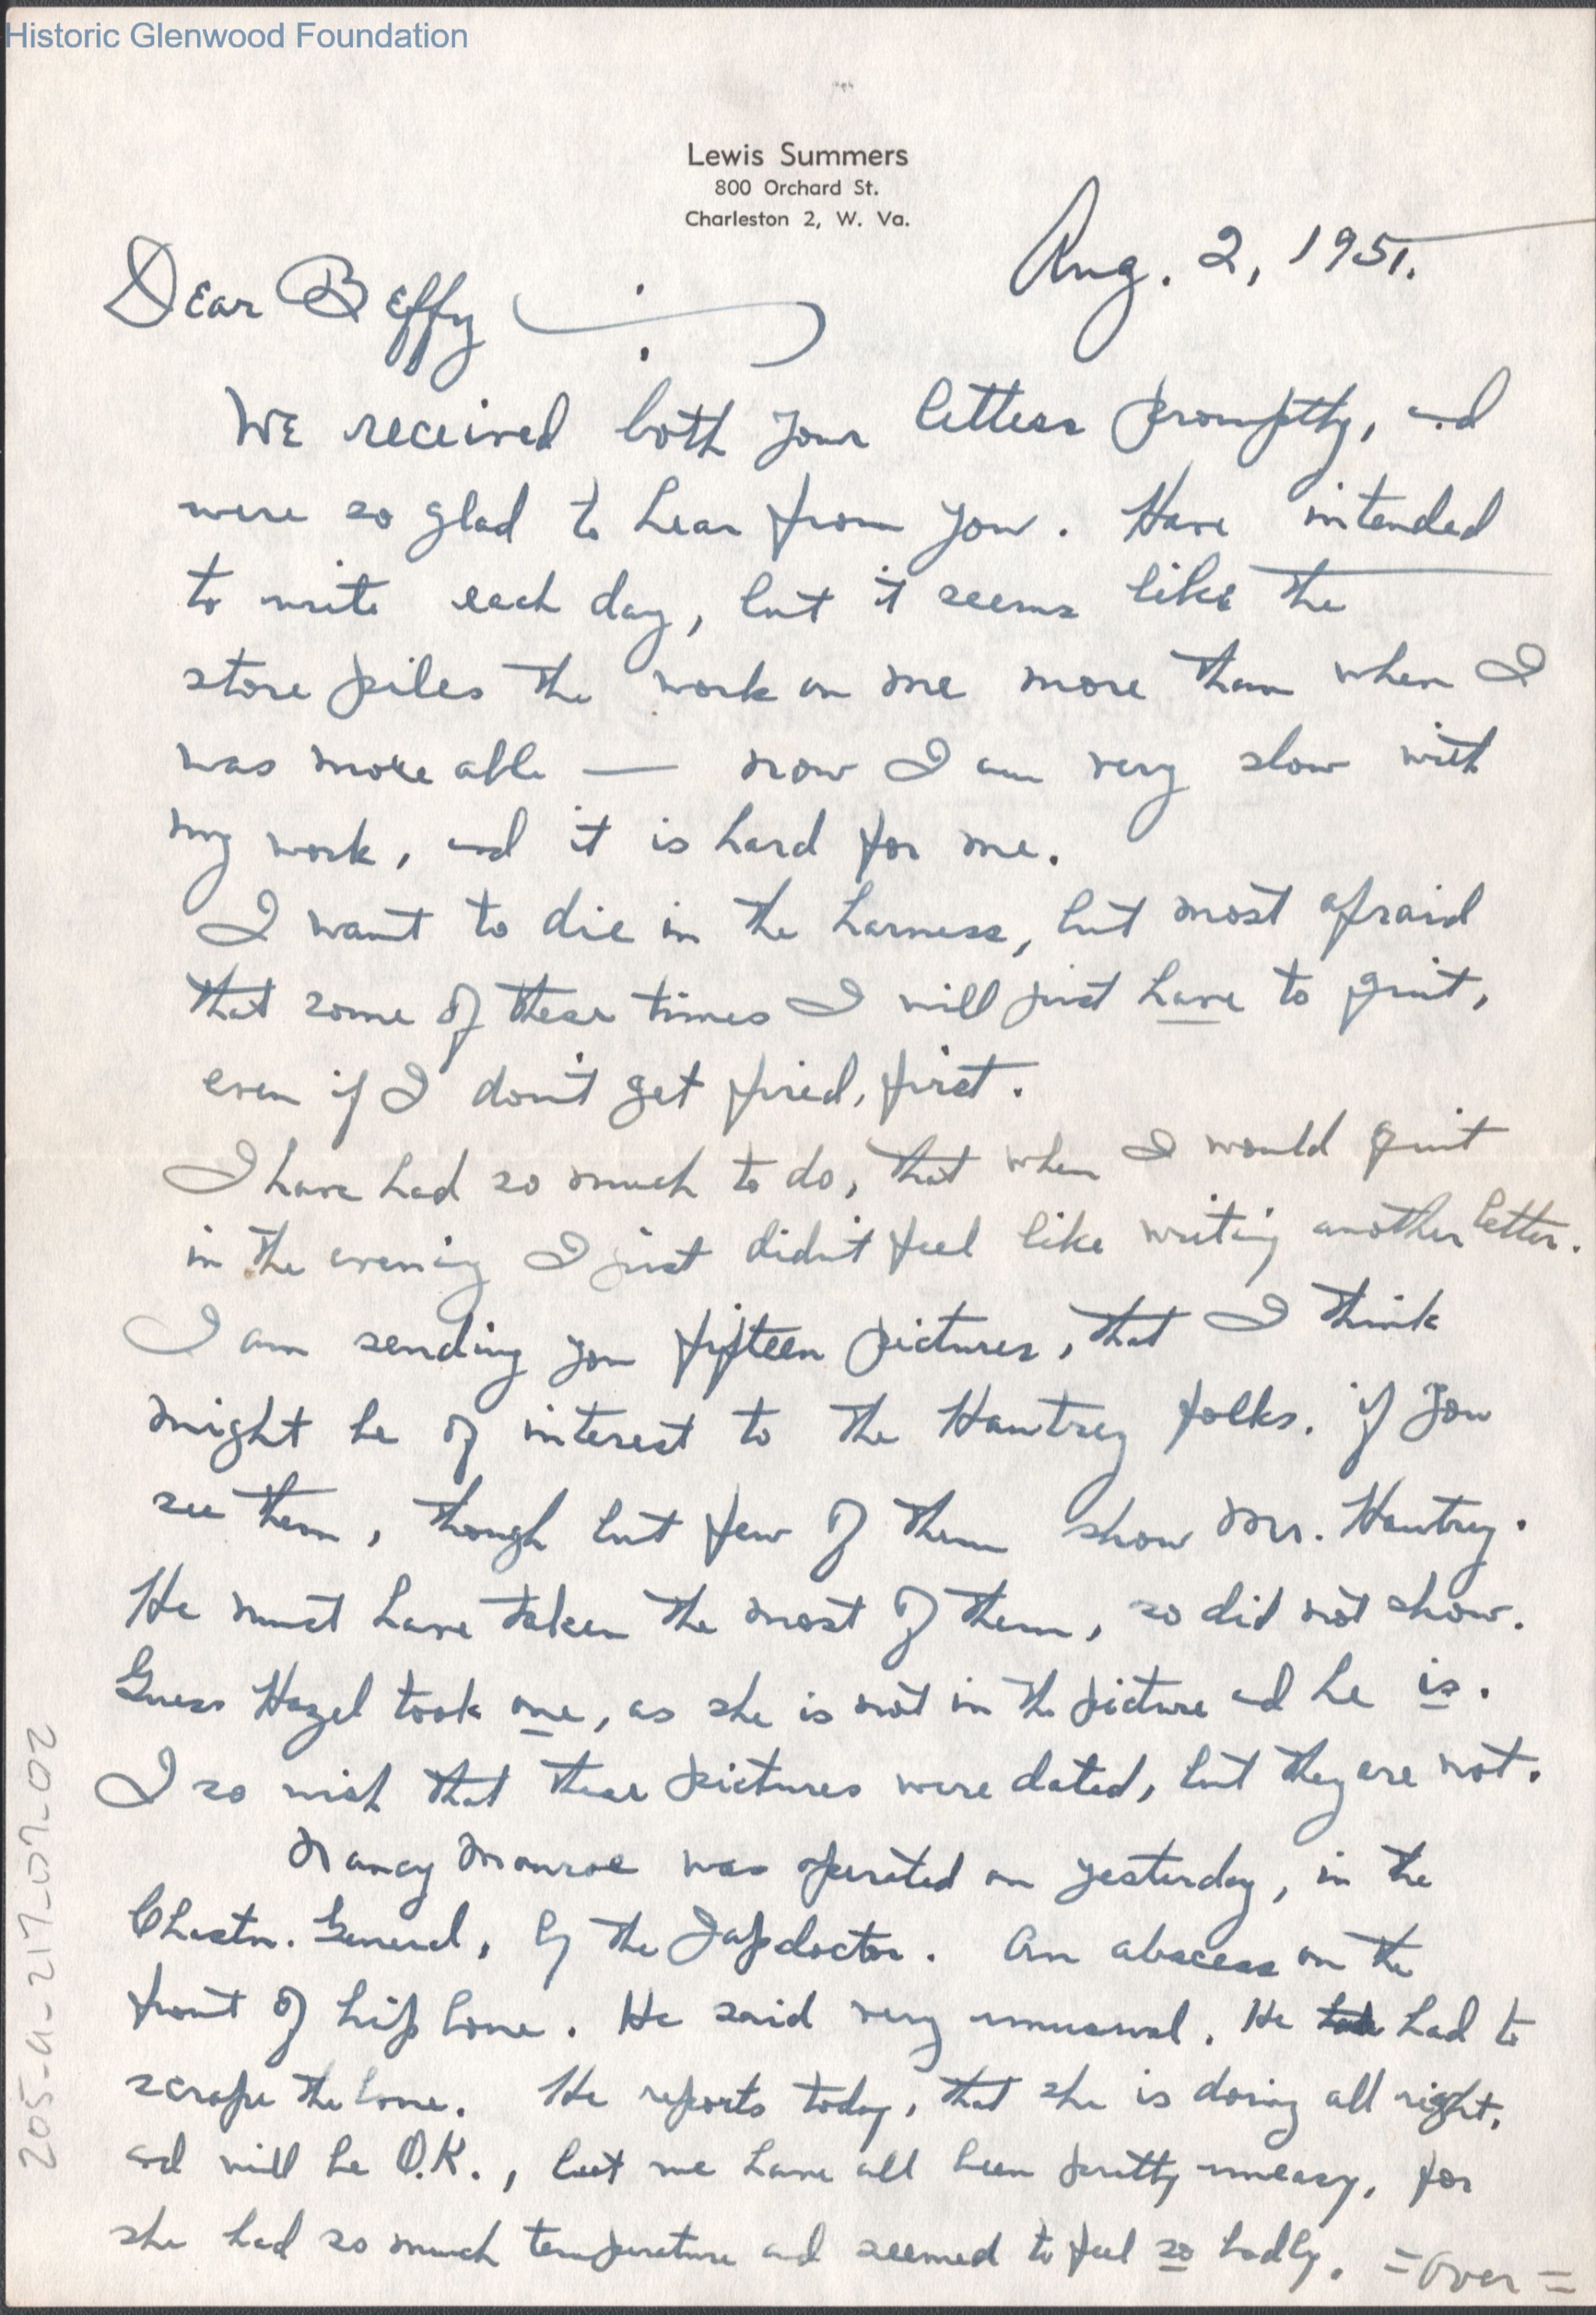 Historic Glenwood Foundation
Lewis Summers
800 Orchard St.
Charleston 2, W. Va.
Aug. 2, 1951.
Dear Beffy :
We received both your letters promptly, and
were so glad to hear from you. Have intended
to write each day, but it seems like the
store piles the work on me more than when I
was more able — now I am very slow with
my work, and it is hard for me.
I want to die in the harness, but most afraid
that some of these times I will just have to quit,
even if I don't get fired, first.
I have had so much to do, that when I would quit
in the evening I just didn't feel like writing another letter.
I am sending you fifteen pictures, that I think
might be of interest to the Hawtrey folks. if you
see them, though but few of them show Mr. Hawtrey.
He must have taken the most of them, so did not show.
Guess Hazel took one, as she is not in the picture and he is.
I so wish that these pictures were dated, but they are not.
Nancy Monroe was operated on yesterday, in the
Chastn. General, by the Jap doctor. An abscess on the
front of hip bone. He said very unusual. He had to
scrape the bone. He reports today, that she is doing all right,
and will be O.K., but we have all been pretty uneasy, for
she had so much temperature and seemed to feel so badly. =Over=
205-a-217-07-02